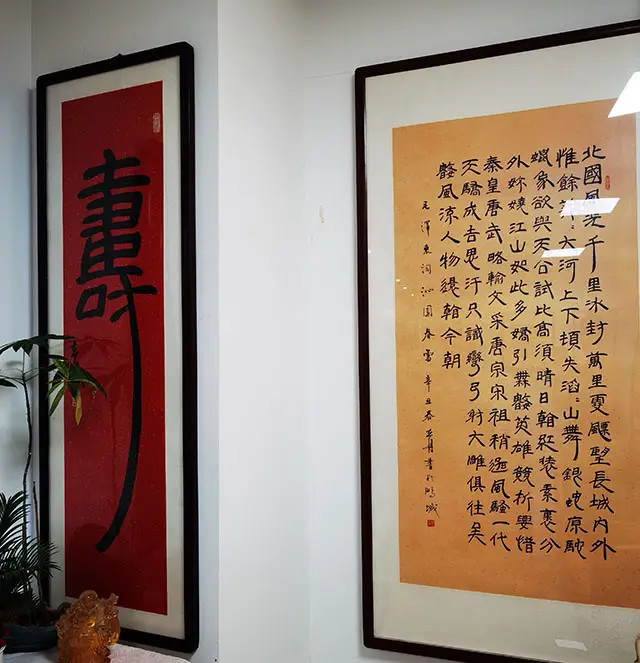 壽
北國風光千里冰封萬里雪飄望長城內外
惟餘莽〻大河上下頓失滔〻山舞銀蛇原馳
蠟象欲與天公試比高須晴日看紅裝素裹分
外妖嬈江山如此多嬌引無數英雄競折腰惜
秦皇漢武略輸文采唐宗宋祖稍遜風騷一代
天驕成吉思汗只識彎弓射大雕俱往矣
數風流人物還看今朝
毛澤東詞沁園春雪辛丑春書於鵬城